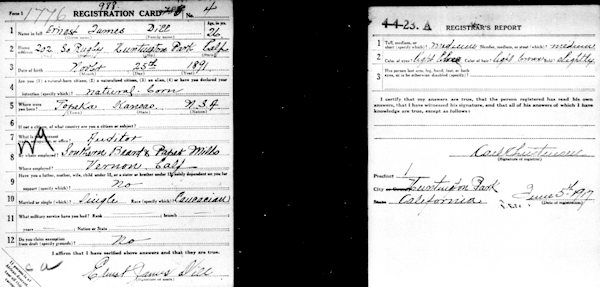 Form 1 1776 988 REGISTRATION CARD No. 4
1 Name in full Ernest James Dill Age, in yrs. 26
(Given name) (Family name)
2 Home address 202 So Rugby Huntington Park Calf
(No.) (Street) (City) (State)
3 Date of birth Nov 25th 1891
(Month) (Day) (Year)
4 Are you (1) a natural-born citizen, (2) a naturalized citizen, (3) an alien, (4) or have you declared your
intention (specify which)? natural born
5 Where were you born? Topeka Kansas U.S.A
(Town) (State) (Nation)
6 If not a citizen, of what country are you a citizen or subject?
7 What is your present trade, occupation, or office? Auditor
8 By whom employed? Southern Board & Paper Mills
Where employed? Vernon Calf
9 Have you a father, mother, wife, child under 12, or a sister or brother under 12, solely dependent on you for
support (specify which)? No
10 Married or single (which)? Single Race (specify which)? Caucasian
11 What military service have you had? Rank branch
years Nation or State
12 Do you claim exemption from draft (specify grounds)? No
I affirm that I have verified above answers and that they are true.
Ernest James Dill
(Signature or mark)
4-4-23. A REGISTRAR'S REPORT
1 Tall, medium, or short (specify which)? medium Slender, medium, or stout (which)? medium
2 Color of eyes? light blue Color of hair? light brown Bald? slightly
3 Has person lost arm, leg, hand, foot, or both
eyes, or is he otherwise disabled (specify)?
I certify that my answers are true, that the person registered has read his own
answers, that I have witnessed his signature, and that all of his answers of which I have
knowledge are true, except as follows:
(Signature of registrar)
Precinct 1
City or County Huntington Park
State California June 5th 1917
(Date of registration)